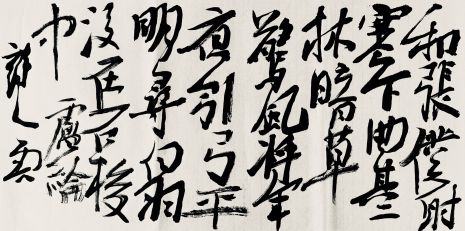 和張僕射
塞下曲其二
林暗草
驚風將軍
夜引弓平
明尋白羽
沒在石棱
中 盧綸